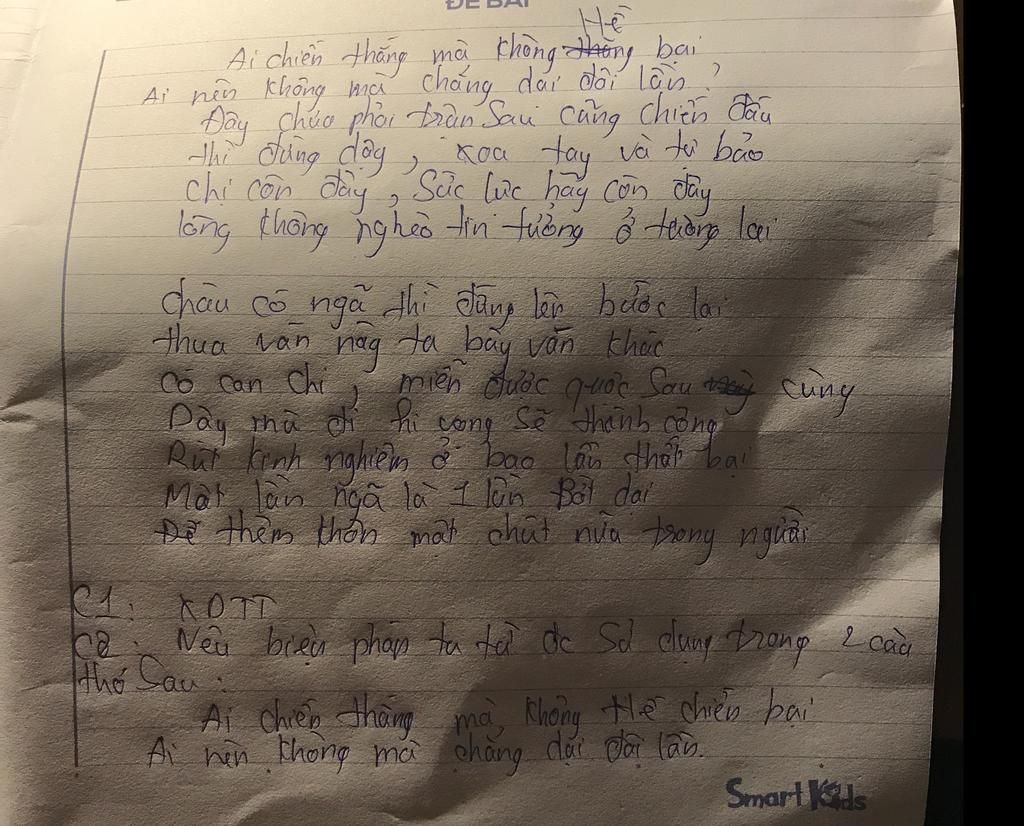 ĐỀ BÀI
Ai chiến thắng mà không Hề bại
Ai nên không mà chẳng dại đôi lần?
Đây cháo phải trận Sau cũng chiến đấu
thì đứng dậy, xoa tay và tự bảo
Chị còn đây, Sức lực hãy còn đây
lòng không nghèo tin tưởng ở tương lai
cháu có ngã thì đứng lên bước lại
thua ván này ta bày ván khác
Có can chi, miễn được cuộc sau cùng
Dày mà đi hi vọng Sẽ thành công
Rút kinh nghiệm ở bao lần thất bại
Một lần ngã là 1 lần Bớt dại
Để thêm khôn một chút nữa trong người
C1: XĐTT
C2: Nêu biện pháp tu từ đc Sử dụng trong 2 câu
thơ Sau:
Ai chiến thắng mà không Hề chiến bại
Ai nên không mà chẳng dại đôi lần.
Smart Kids